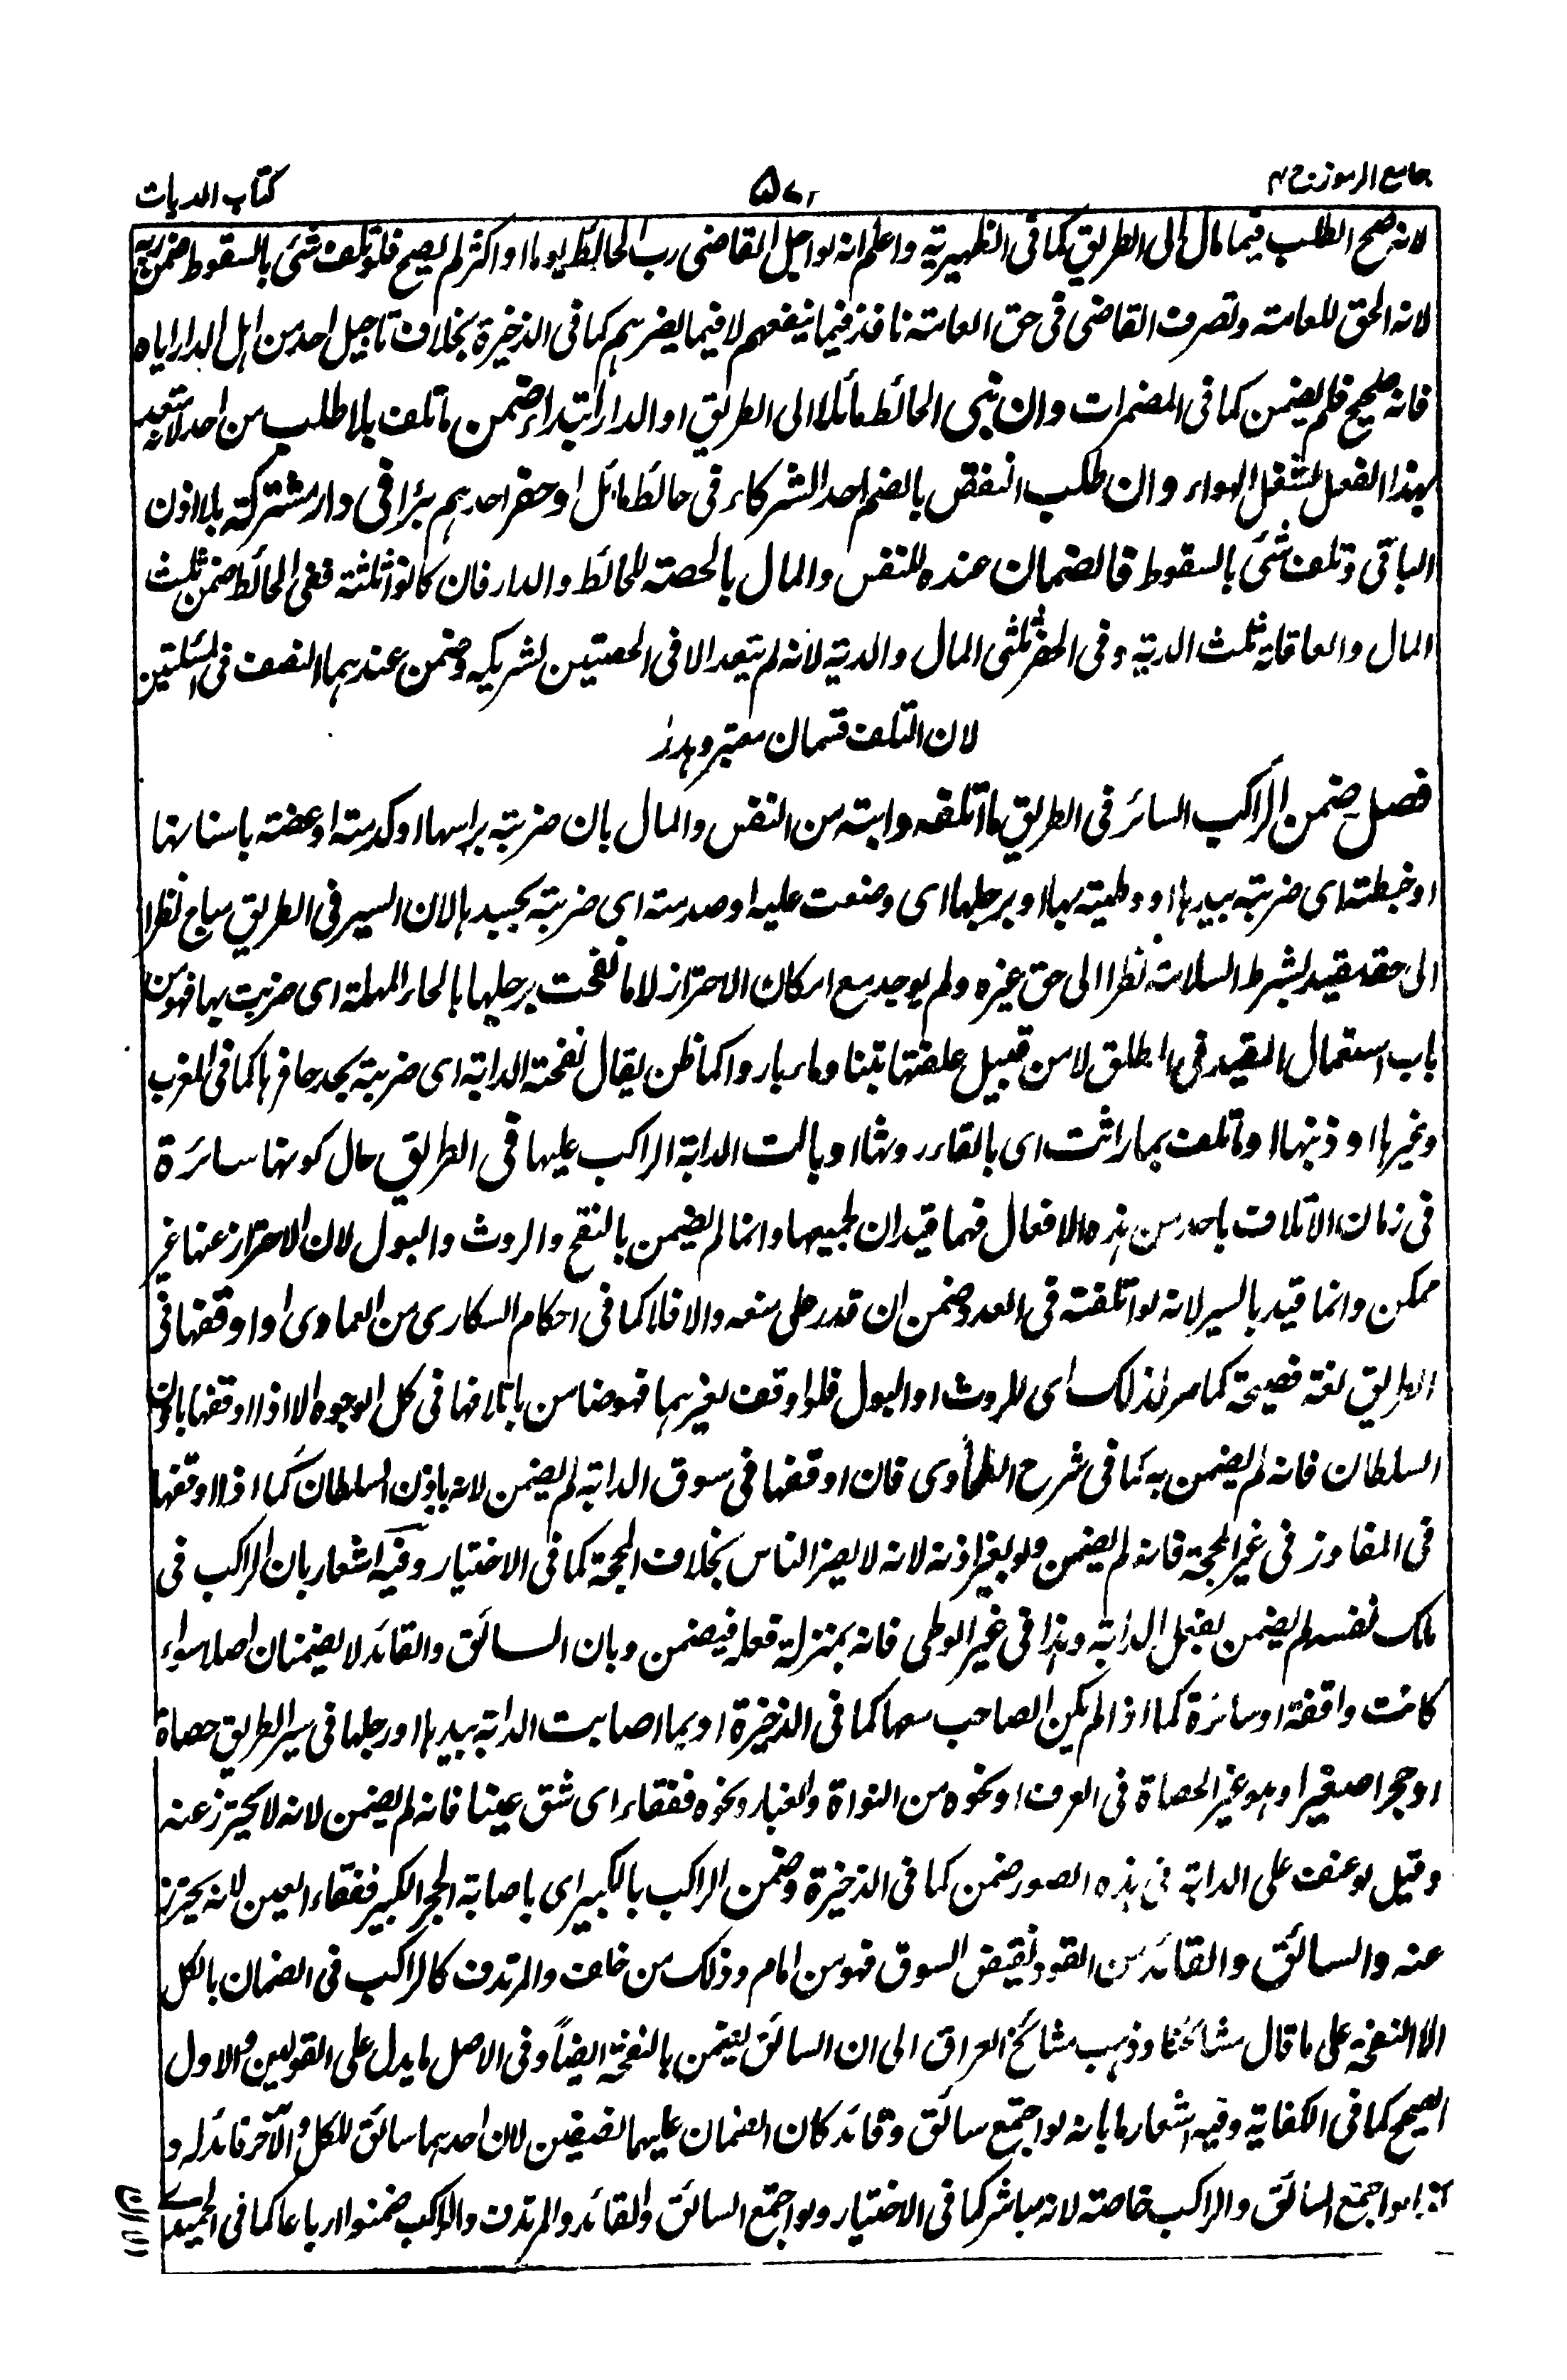 جامع الرموز ج ٢
كتاب الديات
لانه صح الطلب فيما مال الى الطريق كما فى الظهيرية واعلم انه لو اجل القاضى رب الحائط يوما او اكثر لم يصح فلو تلف شئ بالسقوط ضمن ربه
لانه الحق للعامة وتصرف القاضى فى حق العامة نافذ فيما ينفعهم لا فيما يضرهم كما فى الذخيرة بخلاف تاجيل احد من اهل الدار اياه
فانه صحيح فلم يضمن كما فى المضمرات وان بنى الحائط مائلا الى الطريق او الدار ابتداء ضمن ما تلف بلا طلب من احد لانه تعد
بهذا الفعل لشغل الهواء وان طلب النقض بالضم احد الشركاء فى حائط مائل او حفر احدهم بئرا فى دار مشتركة بلا اذن
الباقى وتلف شئ بالسقوط فالضمان عنده للنفس والمال بالحصة للحائط والدار فان كانوا ثلثة ففى الحائط ضمن ثلث
المال والعاقلة ثلث الدية وفى الحفر ثلثى المال والدية لانه لم يتعد الا فى الحصتين لشريكيه وضمن عندهما النصف فى المسئلتين
لان التلف قسمان معتبر وهدر
فصل ضمن الراكب السائر فى الطريق ما اتلفه دابته من النفس والمال بان ضربته براسها او كدمته او عضته باسنانها
او خبطته اى ضربته بيدها او وطيته بها او برجلها اى وضعت عليه او صدمته اى ضربته بجسدها لان السير فى الطريق مباح نظرا
الى حقه مقيد بشرط السلامة نظرا الى حق غيره ولم يوجد مع امكان الاحتراز لا ما نفحت برجلها بالحاء المهملة اى ضربت بها فهو من
باب استعمال المقيد فى المطلق لا من قبيل علفتها تبنا وماء باردا كما ظن يقال نفحته الدابة اى ضربته بحد حافرها كما فى المغرب
وغيرها او ذنبها او ما تلف بما راثت اى بالقاء روثها او بالت الدابة الراكب عليها فى الطريق حال كونها سائرة
فى زمان الاتلاف باحد من هذه الافعال فهما قيدان لجميعها وانما لم يضمن بالنفح والروث والبول لان الاحتراز عنها غير
ممكن وانما قيد بالسير لانه لو اتلفته فى العدو ضمن ان قدر على منعه والا فلا كما فى احكام السكارى من العمادى او اوقفها فى
الطريق لغة فصيحة كما مر لذلك اى للروث او البول فلو اوقف لغيرهما فهو ضامن باتلافها فى كل الوجوه الا اذا اوقفها باذن
السلطان فانه لم يضمن به كما فى شرح الطحاوى فان اوقفها فى سوق الدابة لم يضمن لانه باذن السلطان كما اذا اوقفها
فى المفاوز فى غير المحجة فانه لم يضمن ولو بغير اذنه لانه لا يضر الناس بخلاف المحجة كما فى الاختيار وفيه اشعار بان الراكب فى
ملك نفسه لم يضمن بفعل الدابة وهذا فى غير الوطى فانه بمنزلة فعله فيضمن وبان السائق والقائد لا يضمنان اصلا سواء
كانت واقفة او سائرة كما اذا لم يكن الصاحب معها كما فى الذخيرة او بما اصابت الدابة بيدها او رجلها فى سير الطريق حصاة
او حجرا صغيرا وهو غير الحصاة فى العرف او نحوه من النواة والغبار ونحوه ففقاء اى شق عينا فانه لم يضمن لانه لا يحترز عنه
وقيل لو عنف على الدابة فى هذه الصور ضمن كما فى الذخيرة وضمن الراكب بالكبير اى باصابة الحجر الكبير ففقاء العين لانه يحترز
عنه والسائق والقائد من القود نقيض السوق فهو من امام وذلك من خلف والمرتدف كالراكب فى الضمان بالكل
الا النفحة على ما قال مشائخنا وذهب مشائخ العراق الى ان السائق يضمن بالنفحة ايضاً وفى الاصل ما يدل على القولين والاول
الصحيح كما فى الكفاية وفيه اشعار ما بانه لو اجتمع سائق وقائد كان الضمان عليهما نصفين لان احدهما سائق للكل والآخر قائد له و
لو اجتمع السائق والراكب خاصة لانه مباشر كما فى الاختيار ولو اجتمع السائق والقائد والمرتدف والراكب ضمنوا ارباعا كما فى